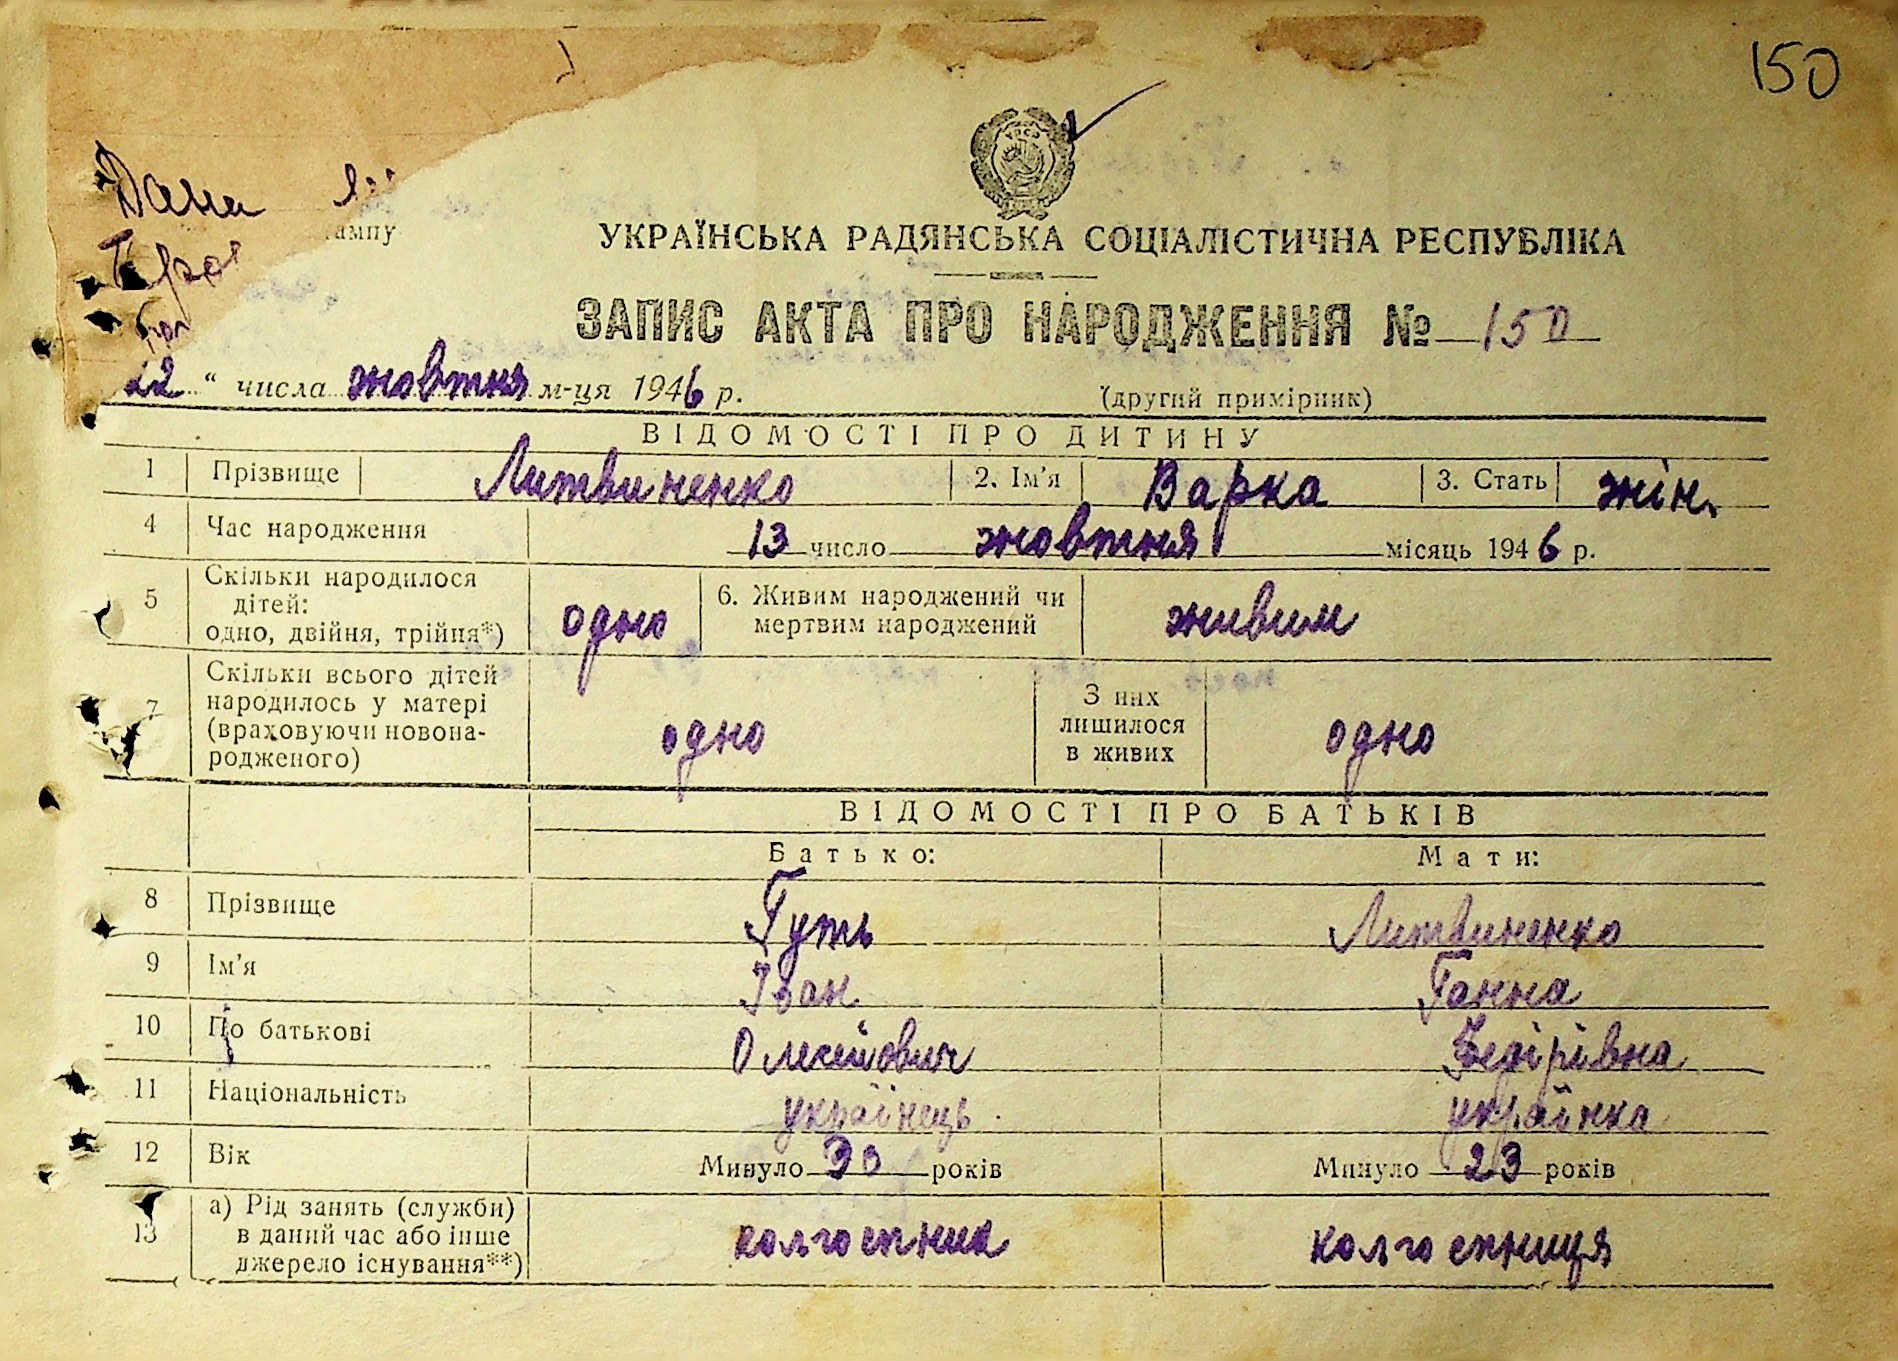 150
Дана
ампу
УКРАЇНСЬКА РАДЯНСЬКА СОЦІАЛІСТИЧНА РЕСПУБЛІКА
ЗАПИС АКТА ПРО НАРОДЖЕННЯ № 150
22 “ числа жовтня м-ця 1946 р.
(другий примірник)
ВІДОМОСТІ ПРО ДИТИНУ
1 Прізвище Литвиненко 2. Ім’я Варка 3. Стать жін.
4 Час народження 13 число жовтня місяць 1946 р.
5 Скільки народилося дітей: одно, двійня, трійня*) одно 6. Живим народжений чи мертвим народжений живим
7 Скільки всього дітей народилось у матері (враховуючи новона-родженого) одно З них лишилося в живих одно
ВІДОМОСТІ ПРО БАТЬКІВ
Батько: Мати:
8 Прізвище Гуть Литвиненко
9 Ім’я Іван Ганна
10 По батькові Олексійович Федірівна
11 Національність українець українка
12 Вік Минуло 30 років Минуло 23 років
13 а) Рід занять (служби) в даний час або інше джерело існування**) колгоспник колгоспниця